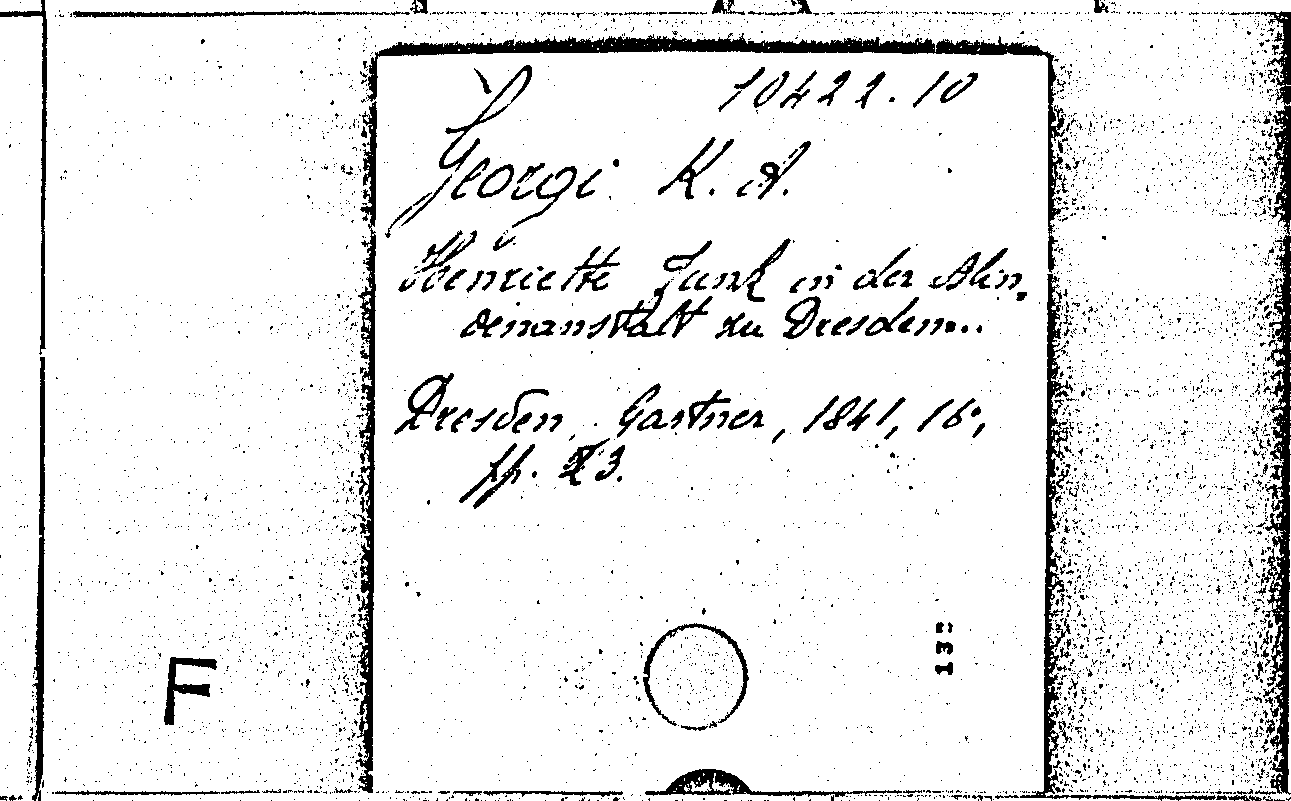 10422.10
Georgi K. A.
Henriette Junk in der Blin,
denanstalt zu Dresden...
Dresden, Gärtner, 1841, 16°,
pp. 23.
13
F